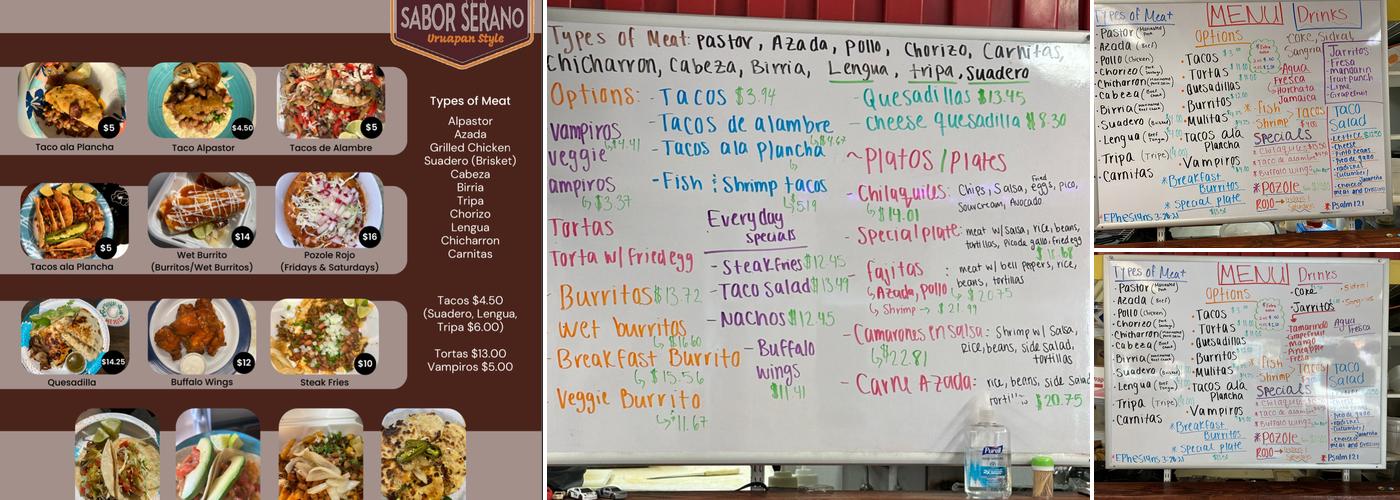 SABOR SERANO
Uruapan Style
$5
Taco ala Plancha
$4.50
Taco Alpastor
$5
Tacos de Alambre
$5
Tacos ala Plancha
$14
Wet Burrito
(Burritos/Wet Burritos)
$16
Pozole Rojo
(Fridays & Saturdays)
$14.25
Quesadilla
$12
Buffalo Wings
$10
Steak Fries
Types of Meat
Alpastor
Azada
Grilled Chicken
Suadero (Brisket)
Cabeza
Birria
Tripa
Chorizo
Lengua
Chicharron
Carnitas
Tacos $4.50
(Suadero, Lengua,
Tripa $6.00)
Tortas $13.00
Vampiros $5.00
Types of Meat: pastor, Azada, pollo, Chorizo, Carnitas,
Chicharron, Cabeza, Birria, Lengua, tripa, Suadero
Options:
vampiros
$4.41
veggie
ampiros
$3.37
Tortas
Torta w/Friedegg
Burritos $13.72
wet burritos
$16.60
Breakfast Burrito
$15.56
Veggie Burrito
$11.67
- Tacos $3.94
- Tacos de alambre
$4.67
- Tacos ala plancha
- Fish & Shrimp tacos
$5.19
Everyday
specials
- Steak fries $12.45
- Taco Salad $13.49
- Nachos $12.45
- Buffalo
wings
$11.41
- Quesadillas $13.45
- cheese quesadilla $8.30
~ Platos / Plates
- Chilaquiles: Chips, Salsa, Fried eggs, pico,
Sourcream, Avocado
$14.01
- Special plate: meat w/salsa, rice, beans,
tortillas, Picada gallo, fried egg
$18.68
- Fajitas : meat w/ bell peppers, rice,
beans, tortillas
Azada, pollo $20.75
Shrimp → $21.99
- Camarones en Salsa: Shrimp w/ Salsa,
rice, beans, side salad,
tortillas
$22.81
- Carne Azada: rice, beans, side Salad
$20.75
Purell
Types of Meat
MENU
Drinks
• Pastor
• Azada (Beef)
• Pollo (Chicken)
• Chorizo
• Chicharron
• Cabeza
• Birria
• Suadero
• Lengua
• Tripa (Tripe)
• Carnitas
Options
• Tacos
• Tortas
• Quesadillas
• Burritos
• Mulitas
• Tacos ala
Plancha
• Vampiros
* Breakfast
Burritos
* Special plate
Coke, Sidral
Sangria
Agua
Fresca
Horchata
Jamaica
Jarritos
- Fresa
- mandarin
- fruit punch
- Lime
- Grapefruit
* Fish
Shrimp > Tacos
Specials
* Chilaquiles
* Taco de alambre
* Buffalo wings
* Pozole
ROJO →
Taco
Salad
• Lettuce
• Cheese
• Pinto beans
• Pico de gallo
• radishes
• Cucumber
• choice of
meat and Dressing
* Ephesians 3:20-21
* Psalm 121
Types of Meat
MENU
Drinks
• Pastor
• Azada (Beef)
• Pollo (Chicken)
• Chorizo
• Chicharron
• Cabeza
• Birria
• Suadero
• Lengua
• Tripa (Tripe)
• Carnitas
Options
• Tacos
• Tortas
• Quesadillas
• Burritos
• Mulitas
• Tacos ala
Plancha
• Vampiros
* Breakfast
Burritos
* Special plate
• Coke
• Sidral
• Jarritos
Tamarindo
Grapefruit
Mango
Pineapple
Fresa
Agua
Fresca
* Fish
Shrimp > Tacos
Specials
* Chilaquiles
* Taco de alambre
* Buffalo wings
* Pozole
ROJO →
Taco
Salad
• Pico de gallo
• radishes
• Cucumber
• choice of
meat and Dressing
* Ephesians 3:20-21
* Psalm 121